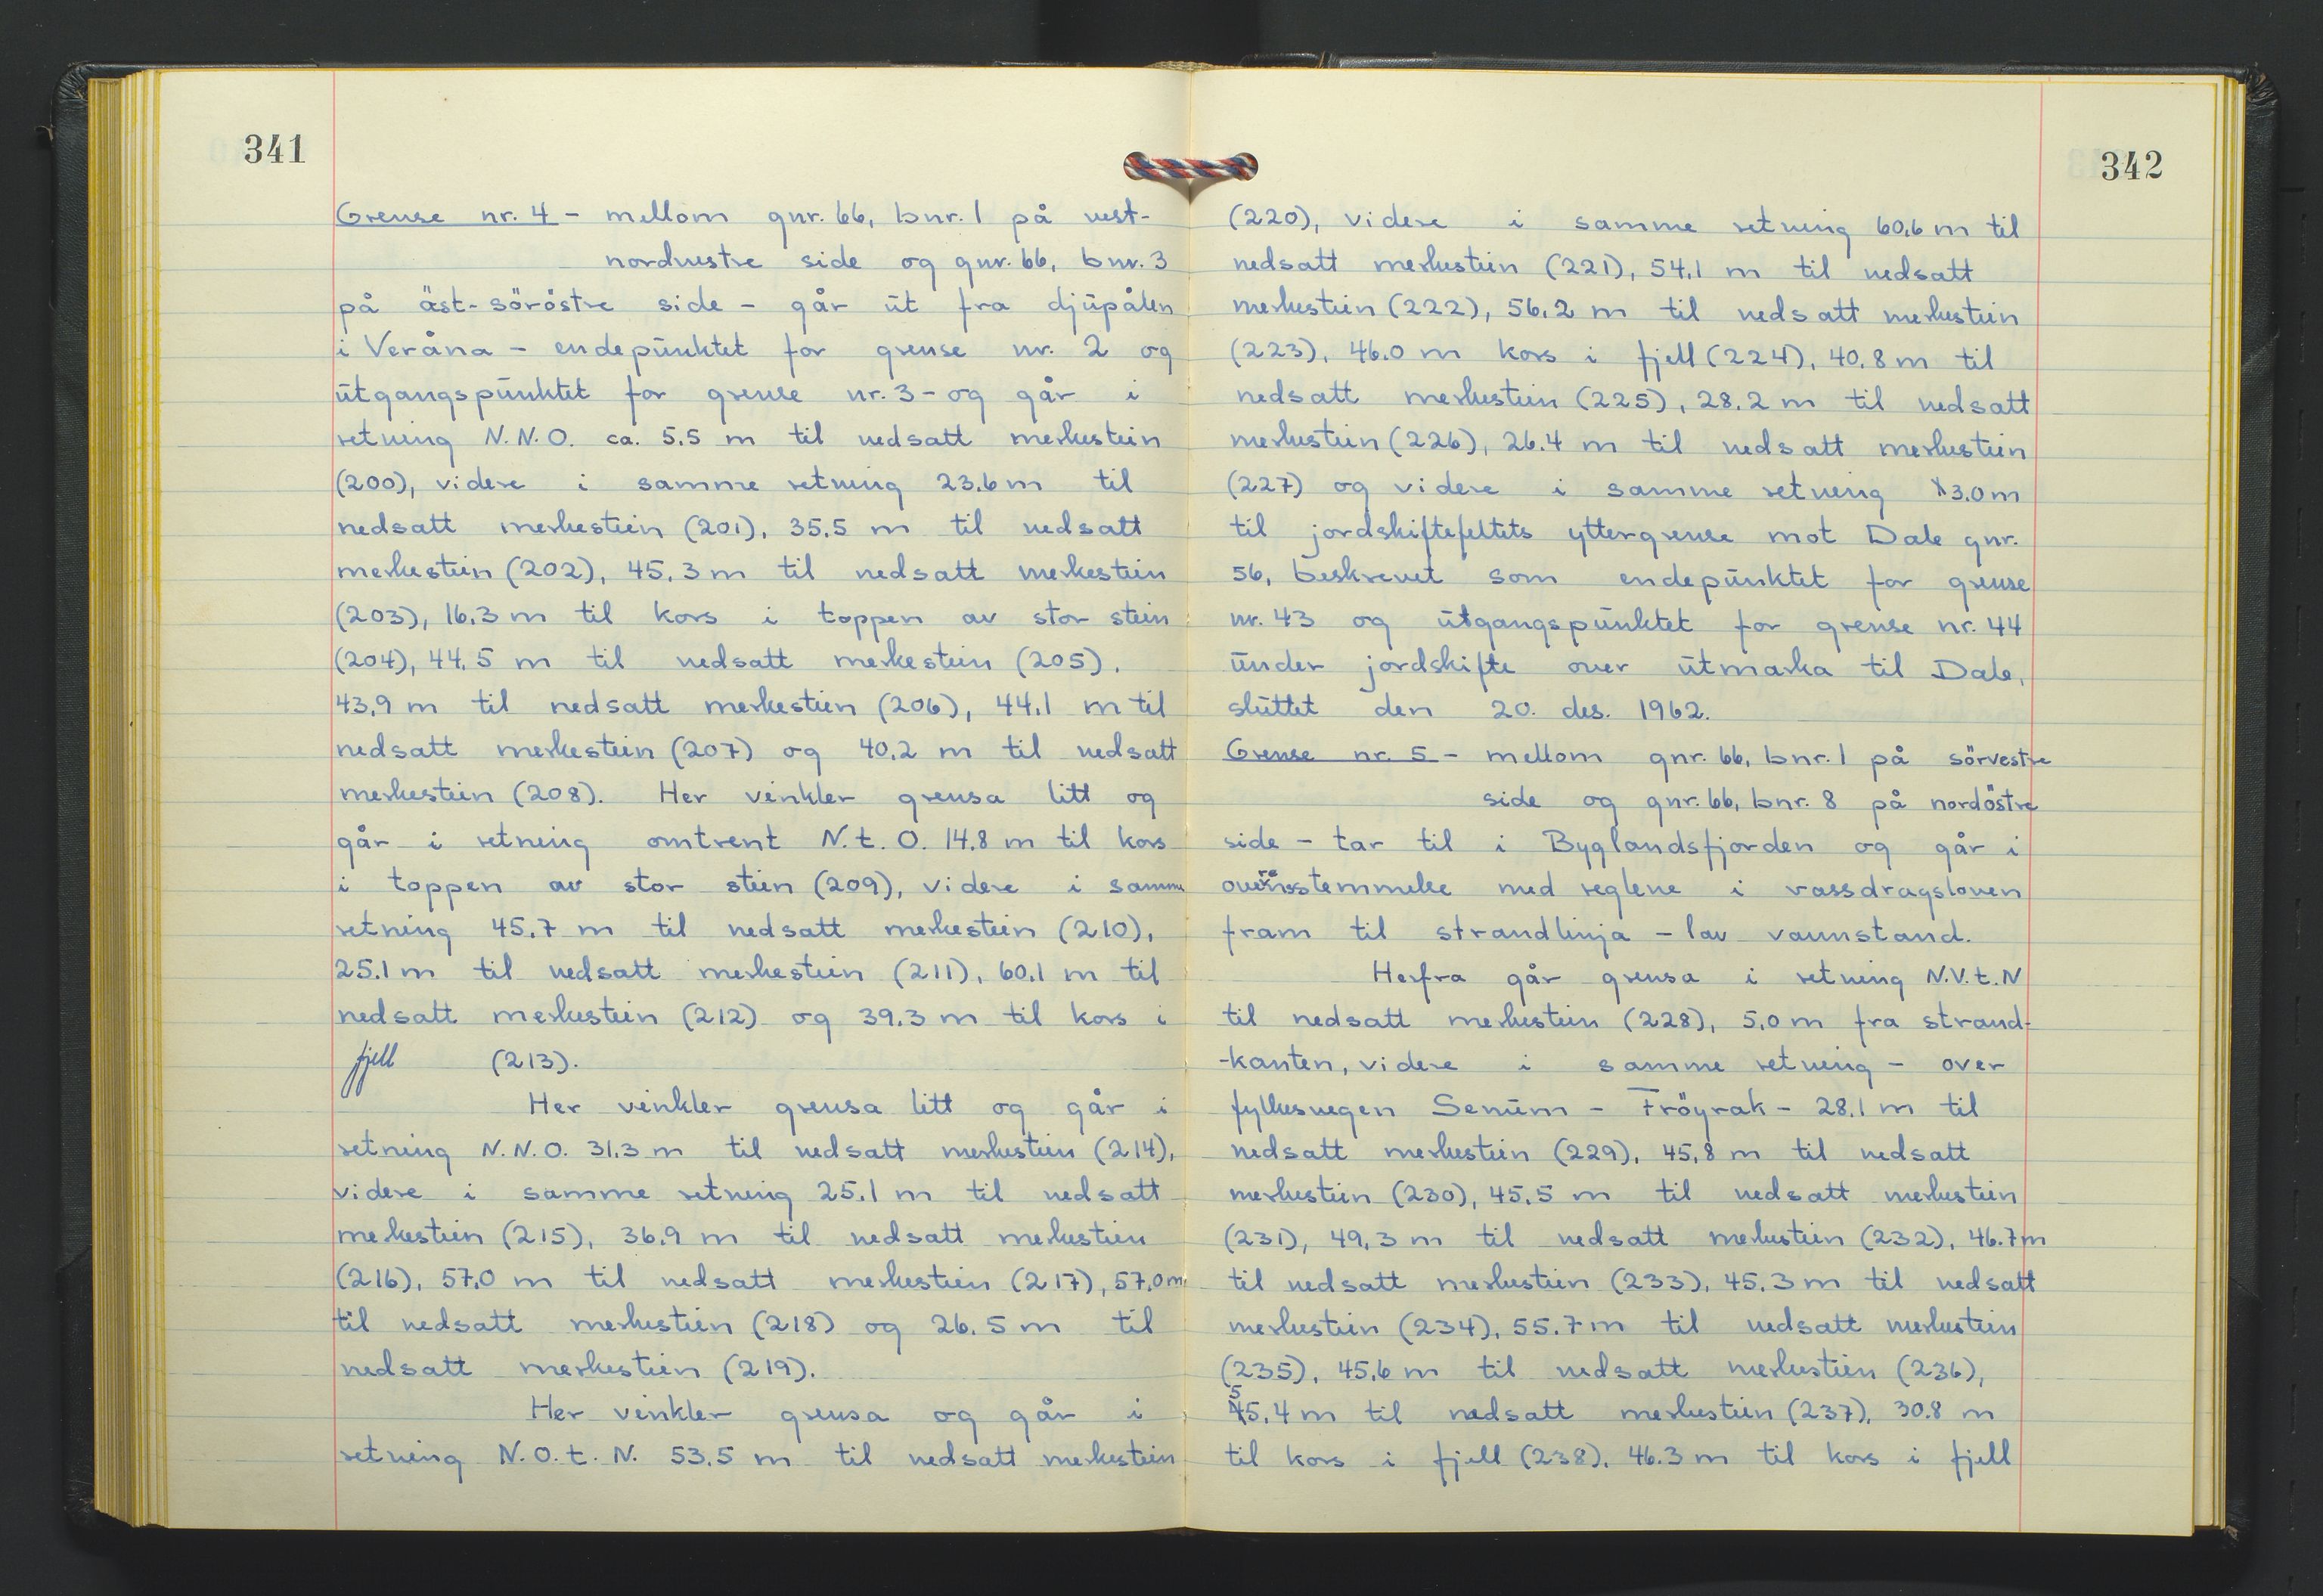 341
Grense nr. 4 - mellom gnr. 66, bnr. 1 på vest-
nordvestre side og gnr. 66, bnr. 3
på äst-söröstre side - går ut fra djupålen
i Veråna - endepunktet for grense nr. 2 og
utgangspunktet for grense nr. 3 - og går i
retning N.N.O. ca. 5.5 m til nedsatt merkestein
(200), videre i samme retning 23.6 m til
nedsatt merkestein (201), 35.5 m til nedsatt
merkestein (202), 45.3 m til nedsatt merkestein
(203), 16.3 m til kors i toppen av stor stein
(204), 44.5 m til nedsatt merkestein (205),
43.9 m til nedsatt merkestein (206), 44.1 m til
nedsatt merkestein (207) og 40.2 m til nedsatt
merkestein (208). Her vinkler grensa litt og
går i retning omtrent N.t.O. 14.8 m til kors
i toppen av stor stein (209), videre i samme
retning 45.7 m til nedsatt merkestein (210),
25.1 m til nedsatt merkestein (211), 60.1 m til
nedsatt merkestein (212) og 39.3 m til kors i
fjell (213).
Her vinkler grensa litt og går i
retning N.N.O. 31.3 m til nedsatt merkestein (214),
videre i samme retning 25.1 m til nedsatt
merkestein (215), 36.9 m til nedsatt merkestein
(216), 57.0 m til nedsatt merkestein (217), 57.0 m
til nedsatt merkestein (218) og 26.5 m til
nedsatt merkestein (219).
Her vinkler grensa og går i
retning N.O.t.N. 53.5 m til nedsatt merkestein
342
(220), videre i samme retning 60.6 m til
nedsatt merkestein (221), 54.1 m til nedsatt
merkestein (222), 56.2 m til nedsatt merkestein
(223), 46.0 m kors i fjell (224), 40.8 m til
nedsatt merkestein (225), 28.2 m til nedsatt
merkestein (226), 26.4 m til nedsatt merkestein
(227) og videre i samme retning 3.0 m
til jordskiftefeltets yttergrense mot Dale gnr.
56, beskrevet som endepunktet for grense
nr. 43 og utgangspunktet for grense nr. 44
under jordskifte over utmarka til Dale,
sluttet den 20. des. 1962.
Grense nr. 5 - mellom gnr. 66, bnr. 1 på sörvestre
side og gnr. 66, bnr. 8 på nordöstre
side - tar til i Byglandsfjorden og går i
overensstemmelse med reglene i vassdragsloven
fram til strandlinja - lav vannstand.
Herfra går grensa i retning N.V.t.N
til nedsatt merkestein (228), 5.0 m fra strand-
-kanten, videre i samme retning - over
fylkesvegen Senum - Fröyrak - 28.1 m til
nedsatt merkestein (229), 45.8 m til nedsatt
merkestein (230), 45.5 m til nedsatt merkestein
(231), 49.3 m til nedsatt merkestein (232), 46.7 m
til nedsatt merkestein (233), 45.3 m til nedsatt
merkestein (234), 55.7 m til nedsatt merkestein
(235), 45.6 m til nedsatt merkestein (236),
55.4 m til nedsatt merkestein (237), 30.8 m
til kors i fjell (238), 46.3 m til kors i fjell